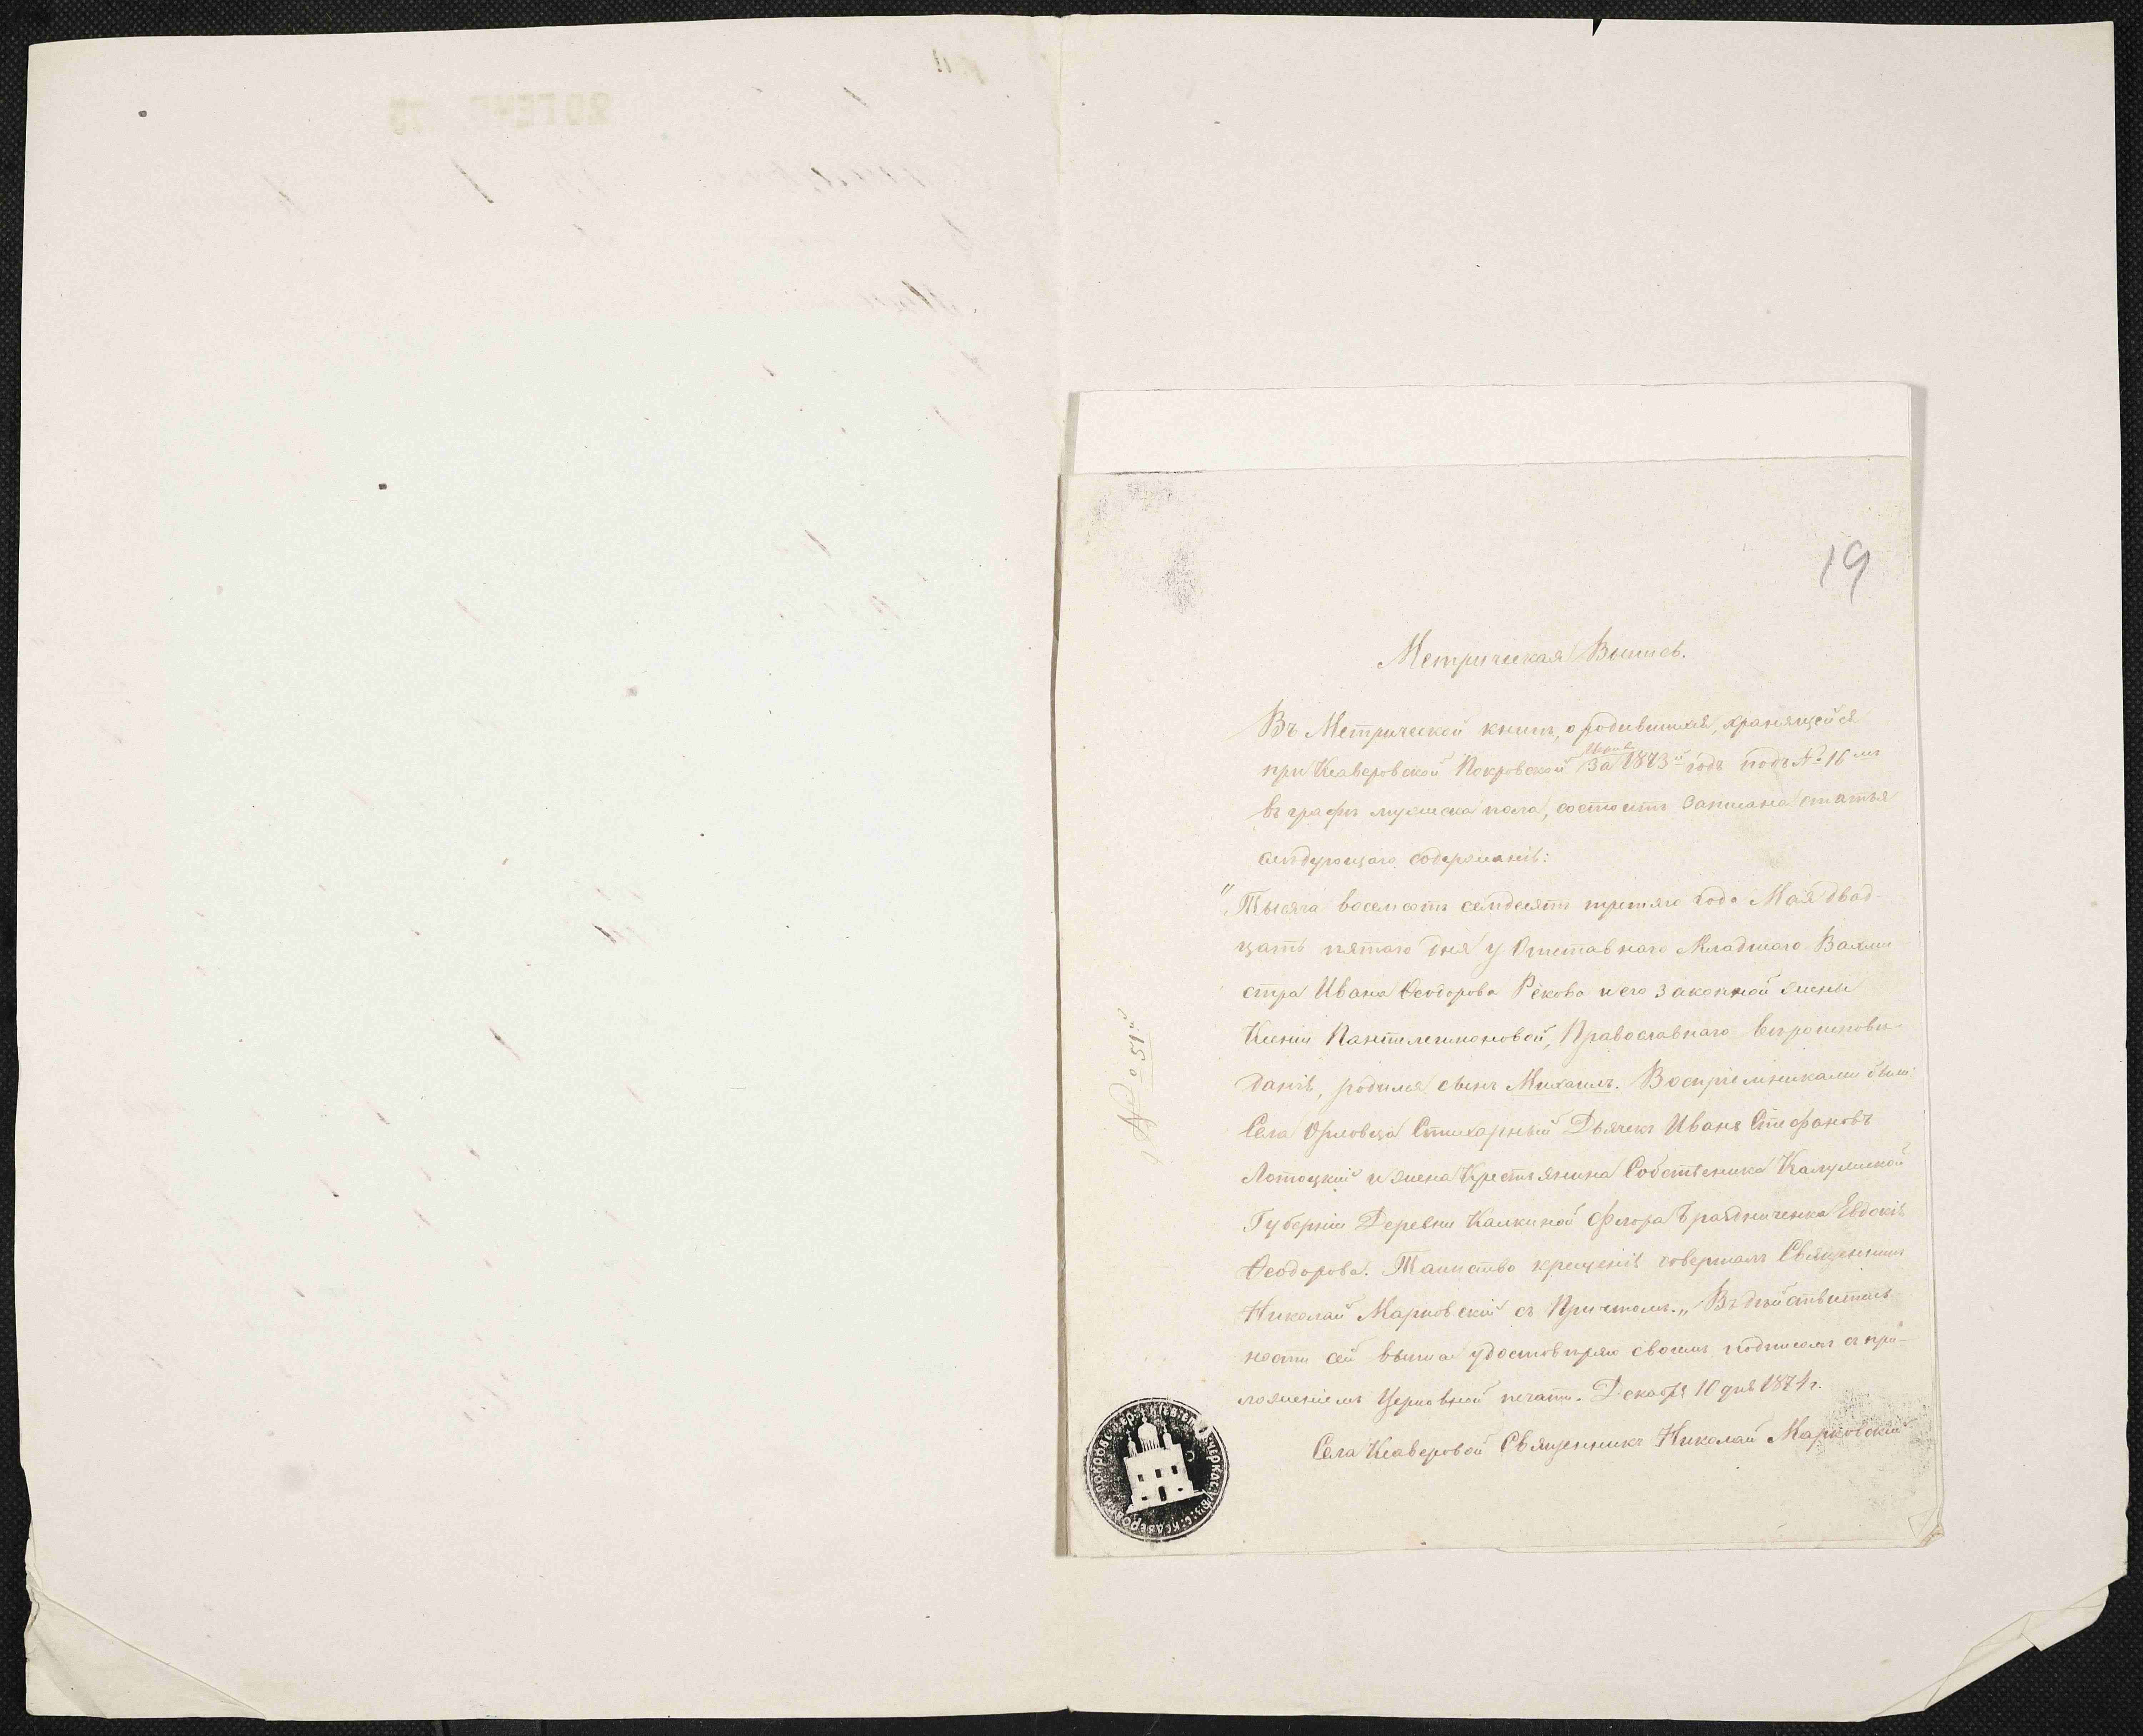 19
Метрическая Выпись.
Въ Метрической книгѣ, о родившихся, хранящейся
при Кеаверовской Покровской церкви за 1873й годъ подъ № 16мъ
въ графѣ мужеска пола, состоитъ записана статья
слѣдующаго содержанія:
"Тысяча восемсотъ семдесятъ третяго года Мая двад-
цать пятаго дня у Отставнаго Младшаго Вахми
стра Ивана Ѳеодорова Рекова и его законной жены
Ксеніи Пантелеимоновой, Православнаго вѣроисповѣ-
данія, родился сынъ Михаилъ. Воспріемниками были:
Села Орловца Стихарный Дьячекъ Иванъ Стефановъ
Лотоцкій и жена Крестьянина Собственика Калужской
Губерніи Деревни Калкиной Флора Евдокія
Ѳеодорова. Таинство крещенія совершалъ Священникъ
Николай Марковскій съ Причтомъ.„ Въ дѣйствитель
ности сей выписи удостовѣряю своимъ подписомъ съ при-
ложеніемъ Церковной печати. Декабря 10 дня 1874г.
Села Кеаверовой Священникъ Николай Марковскій
№ 51й